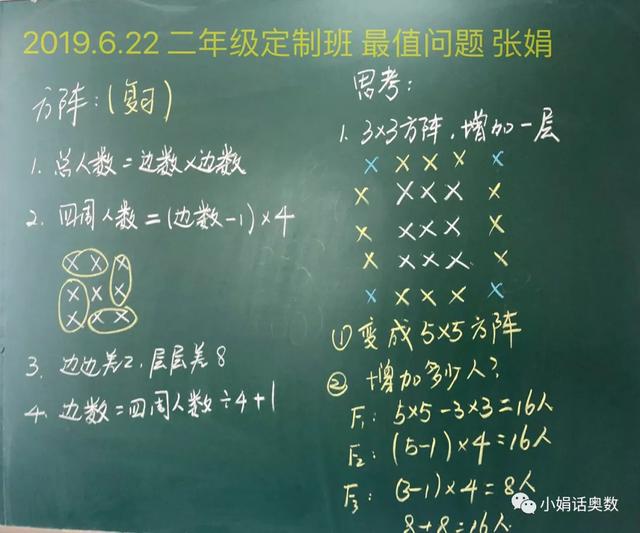 2019.6.22 二年级定制班 最值问题 张娟
方阵：（复习）
1. 总人数＝边数×边数
2. 四周人数＝(边数-1)×4
××× 
×××
×××
3. 边边差2，层层差8
4. 边数＝四周人数÷4+1
思考：
1. 3×3方阵，增加一层
× × × × ×
× × × × ×
× × × × ×
× × × × ×
× × × × ×
① 变成5×5方阵
② 增加多少人？
F1: 5×5-3×3=16人
F2: (5-1)×4=16人
F3: (3-1)×4=8人
8+8=16人
小娟话奥数